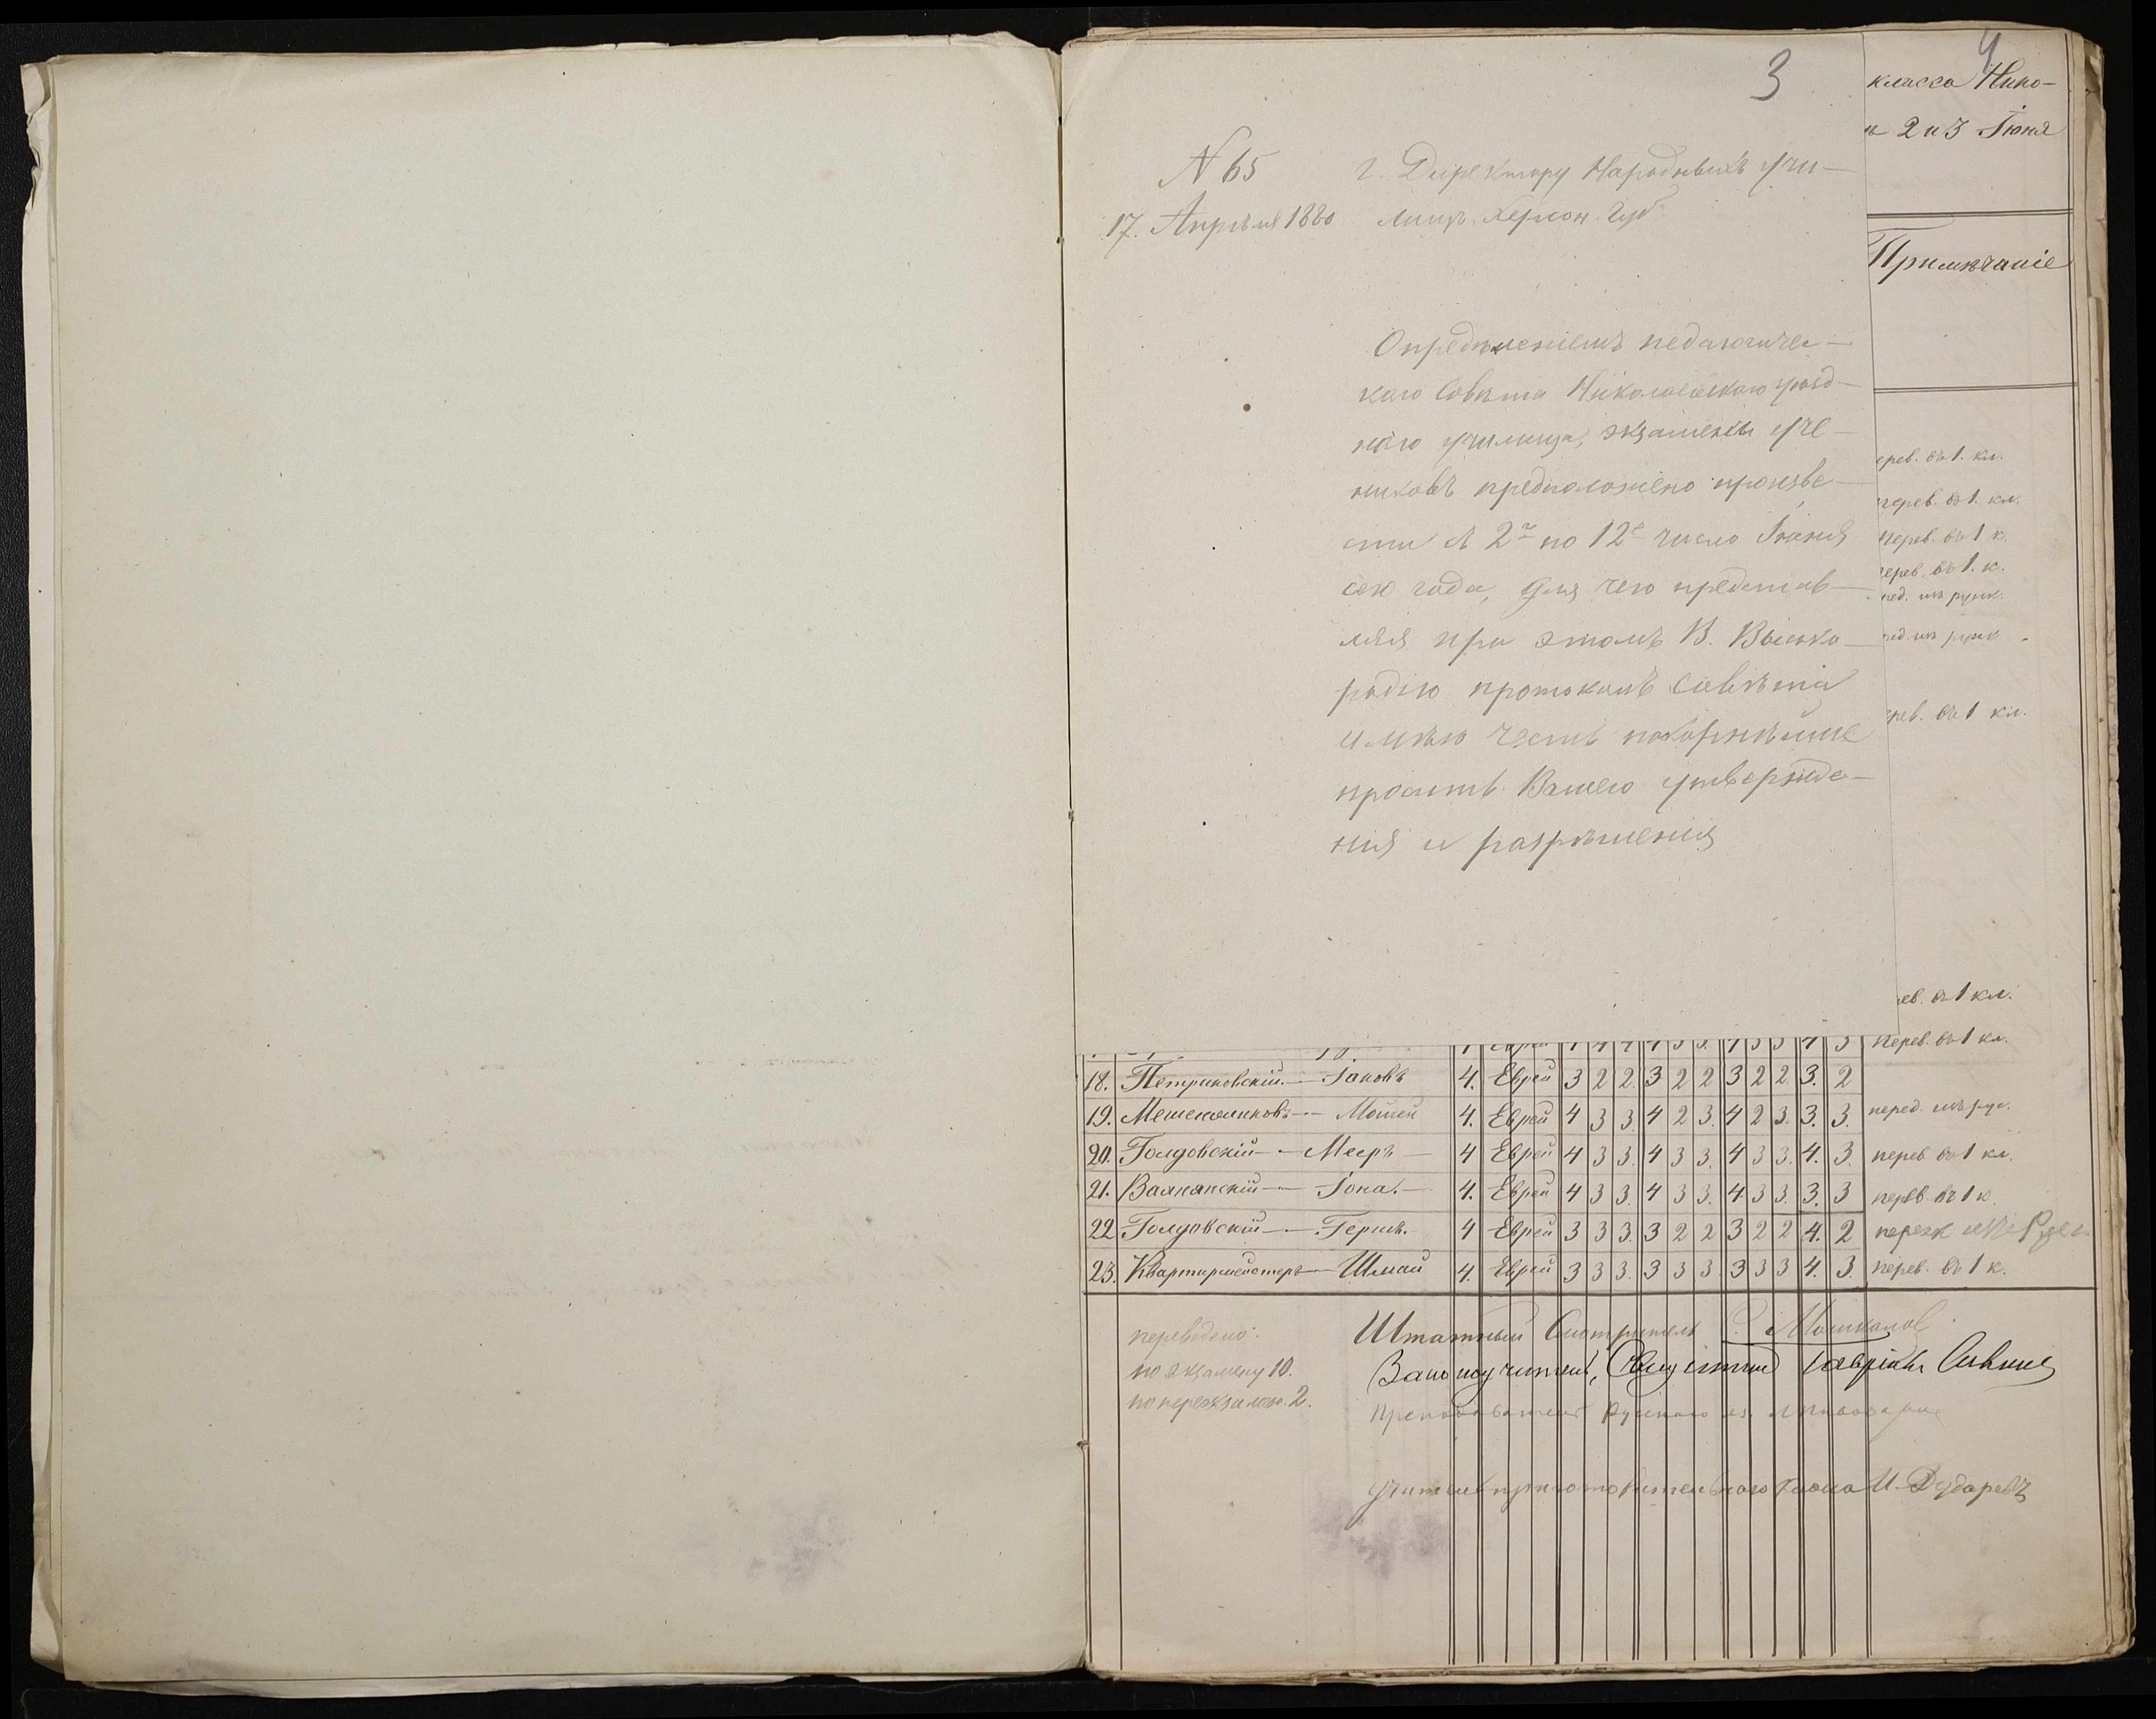 3
N 65
17. Апрѣля 1880
г. Директору Народныхъ учи-
лищъ Херсон. Губ.
Опредѣленіемъ педагогичес-
каго Совѣта Николаевскаго уѣзд-
наго училища, экзамены уче-
никовъ предположено произве-
сти съ 2го по 12е число Іюня
сего года, для чего представ-
ляя при этомъ В. Высоко-
родію протоколъ Совѣта
имѣю честь покорнѣйше
просить Вашего утвержде-
нія и разрѣшенія
4
класса Нико-
2 и 3 Іюня
Примѣчаніе
ерев. въ 1. кл.
перев. въ 1. кл.
перев. въ 1 к.
перев. въ 1. к.
рев. въ 1 кл.
ев. въ 1 кл.
перев. въ 1 кл.
18. Петриковскій — Іаковъ 4. Еврей 3 2 2. 3 2 2 3 2 2. 3. 2
19. — Мошей 4. Еврей 4 3 3. 4 2 3. 4 2 3. 3. 3.
20. Голдовскій — Мееръ 4 Еврей 4 3 3. 4 3 3. 4 3 3. 4. 3. перев въ 1 кл.
21. — Іона. 4. Еврей 4 3 3. 4 3 3. 4. 3 3. 3. 3 перев. въ 1 к.
22 Голдовскій — Гершъ. 4 Еврей 3 3 3. 3 2 2 3 2 2 4. 2
23. Квартирмейстеръ — Шмай 4. Еврей 3 3 3. 3 3 3. 3 3 3 4. 3. перев. въ 1 к.
переведено:
по экзамену 10.
по переэкзамен. 2.
Штатный Смотритель
Законоучитель,
Преподаватель Русскаго яз.
Учитель приготовительнаго класса И. Дударевъ